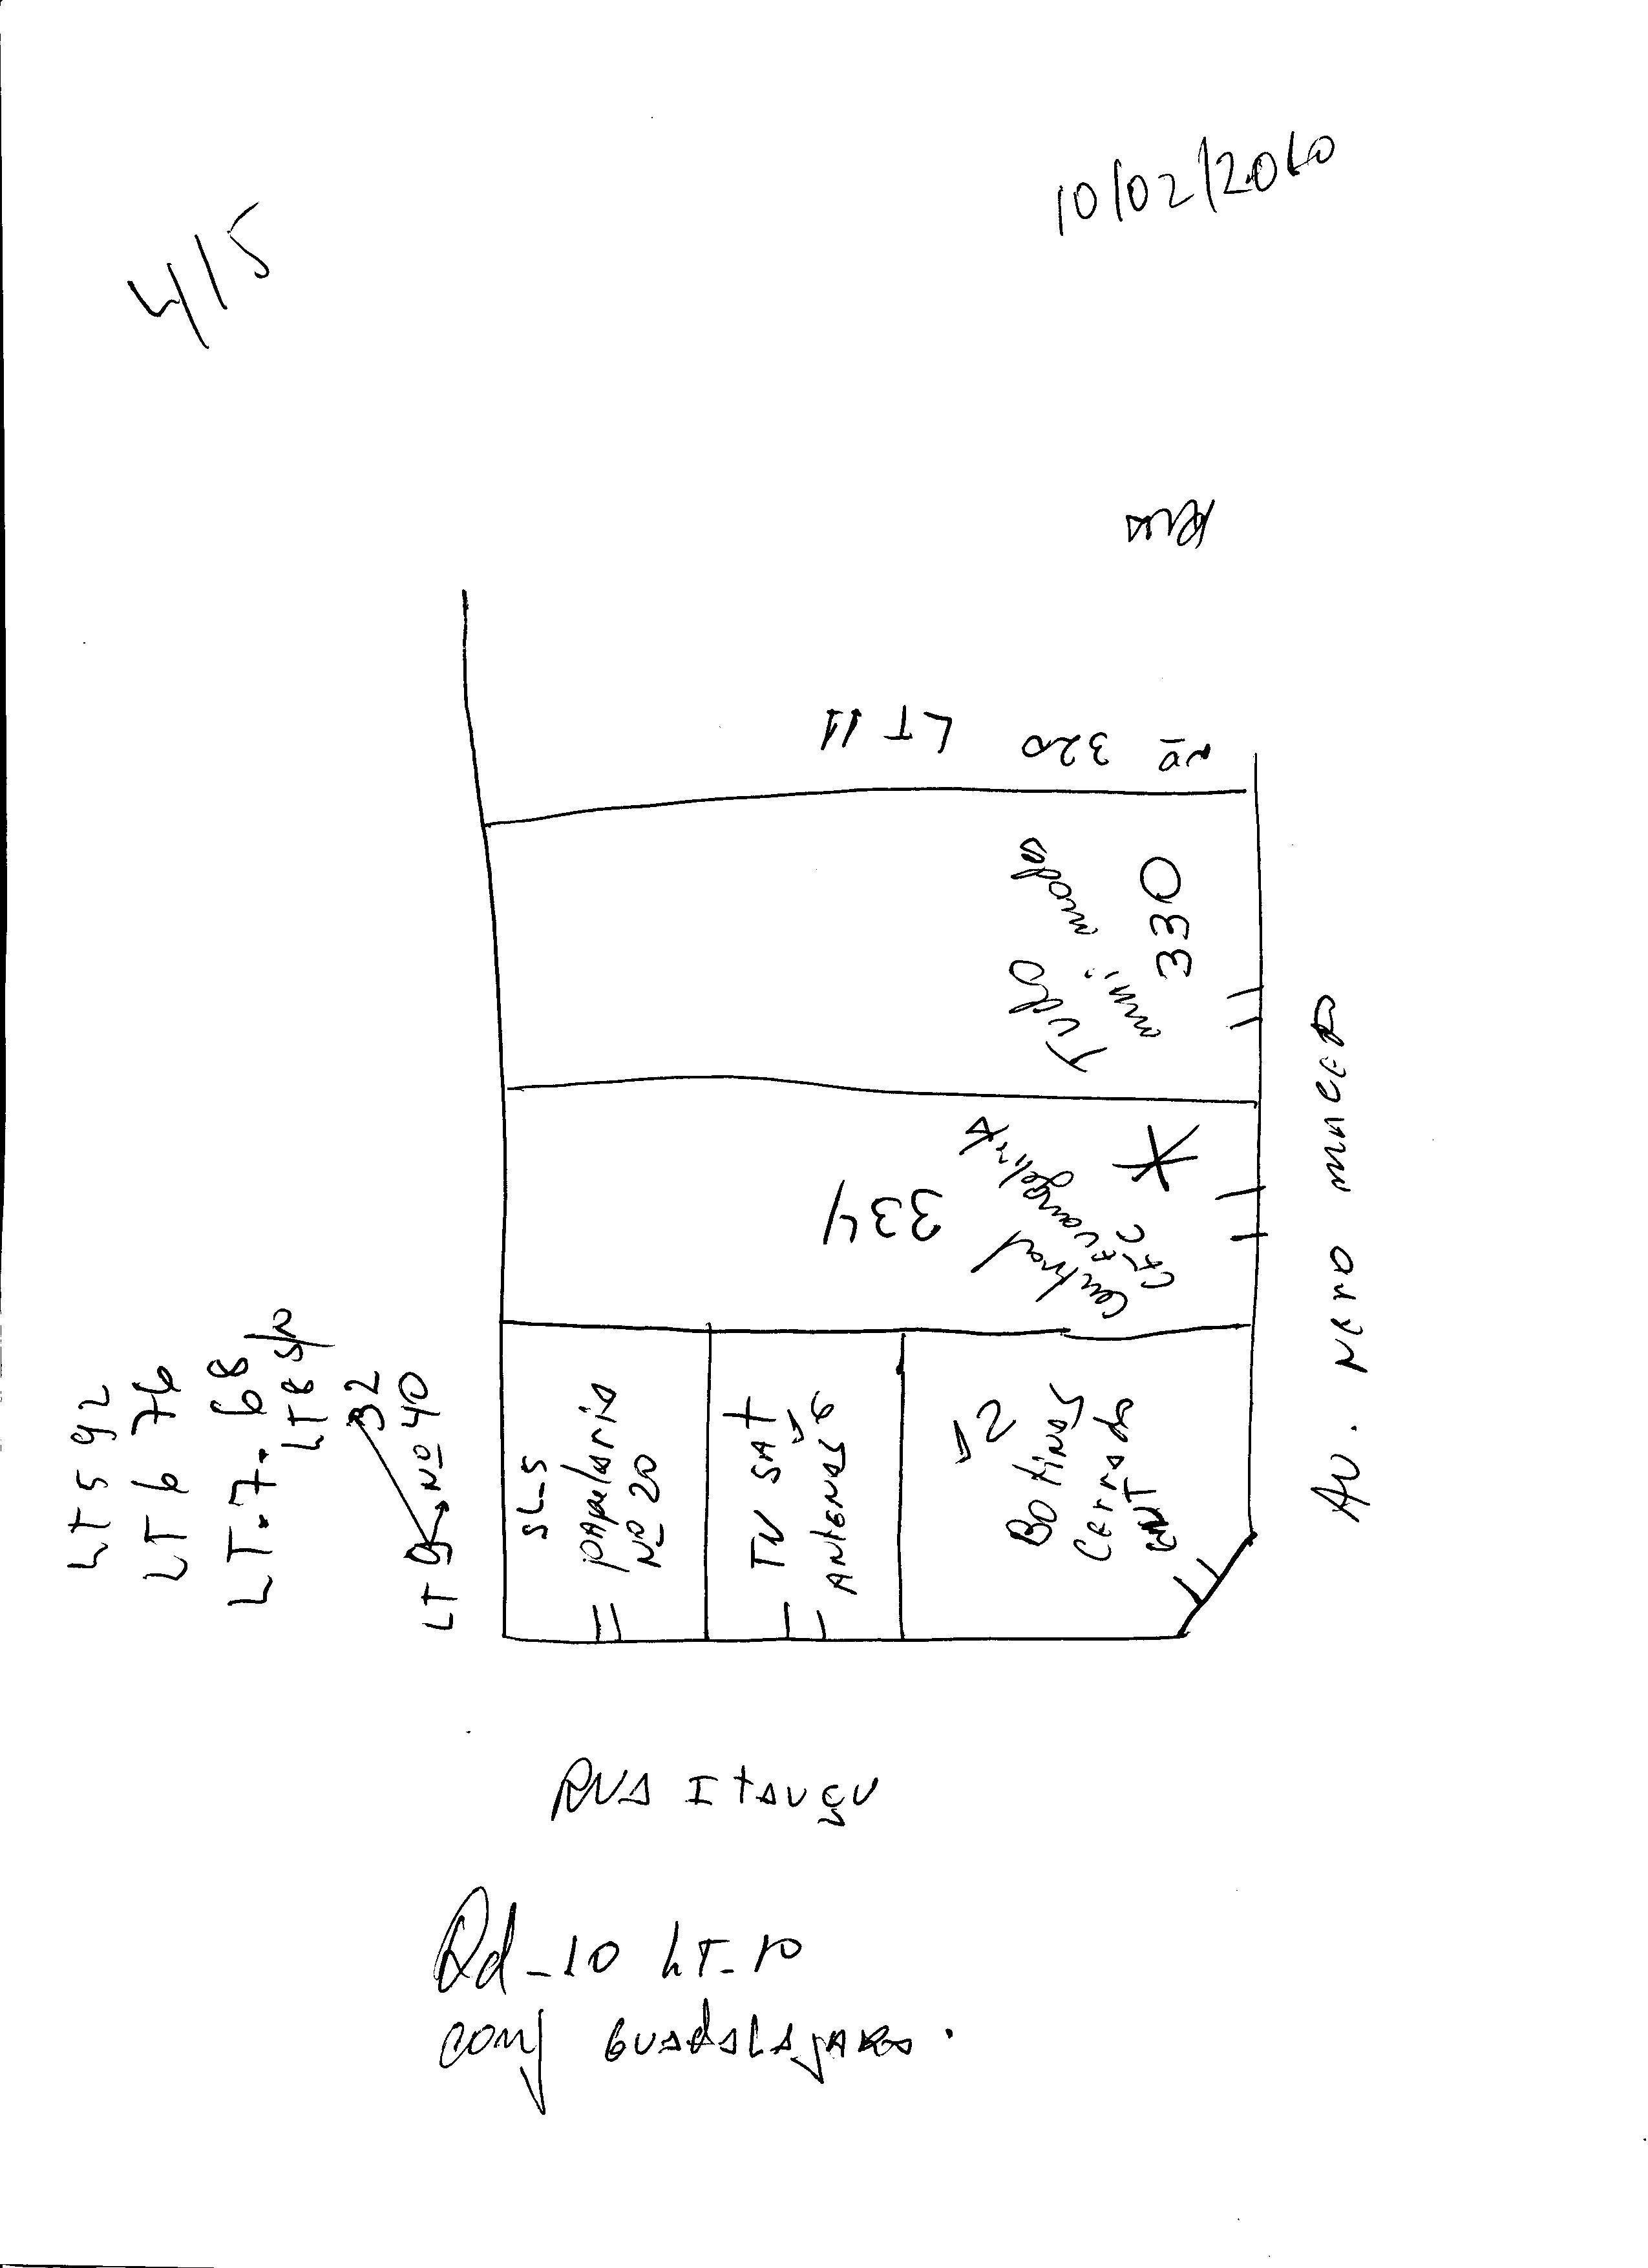 10/02/2010
415
Rua
Nº 320 LT 11
Tudo
mini modas
330
334
Central
Evangelista
LT 5 92
LT 6 76
LT.7. 68
LT 8 S/N
32
LT 9 Nº 40
SL-5
papelaria
Nº 20
TV SAT
ANTENAS 6
12
Botinas
Cerrado
AV. NERO MACEDO
RUA ITAUÇU
Qd-10 LT-10
conj GUADALAJARA.